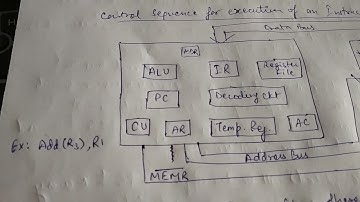 Control Sequence for execution of an Instruc
Data Bus
MDR
ALU
IR
Register
File
PC
Decoding Ckt
CU
AR
Temp. Reg.
AC
Ex: Add (R3), R1
Address Bus
MEMR